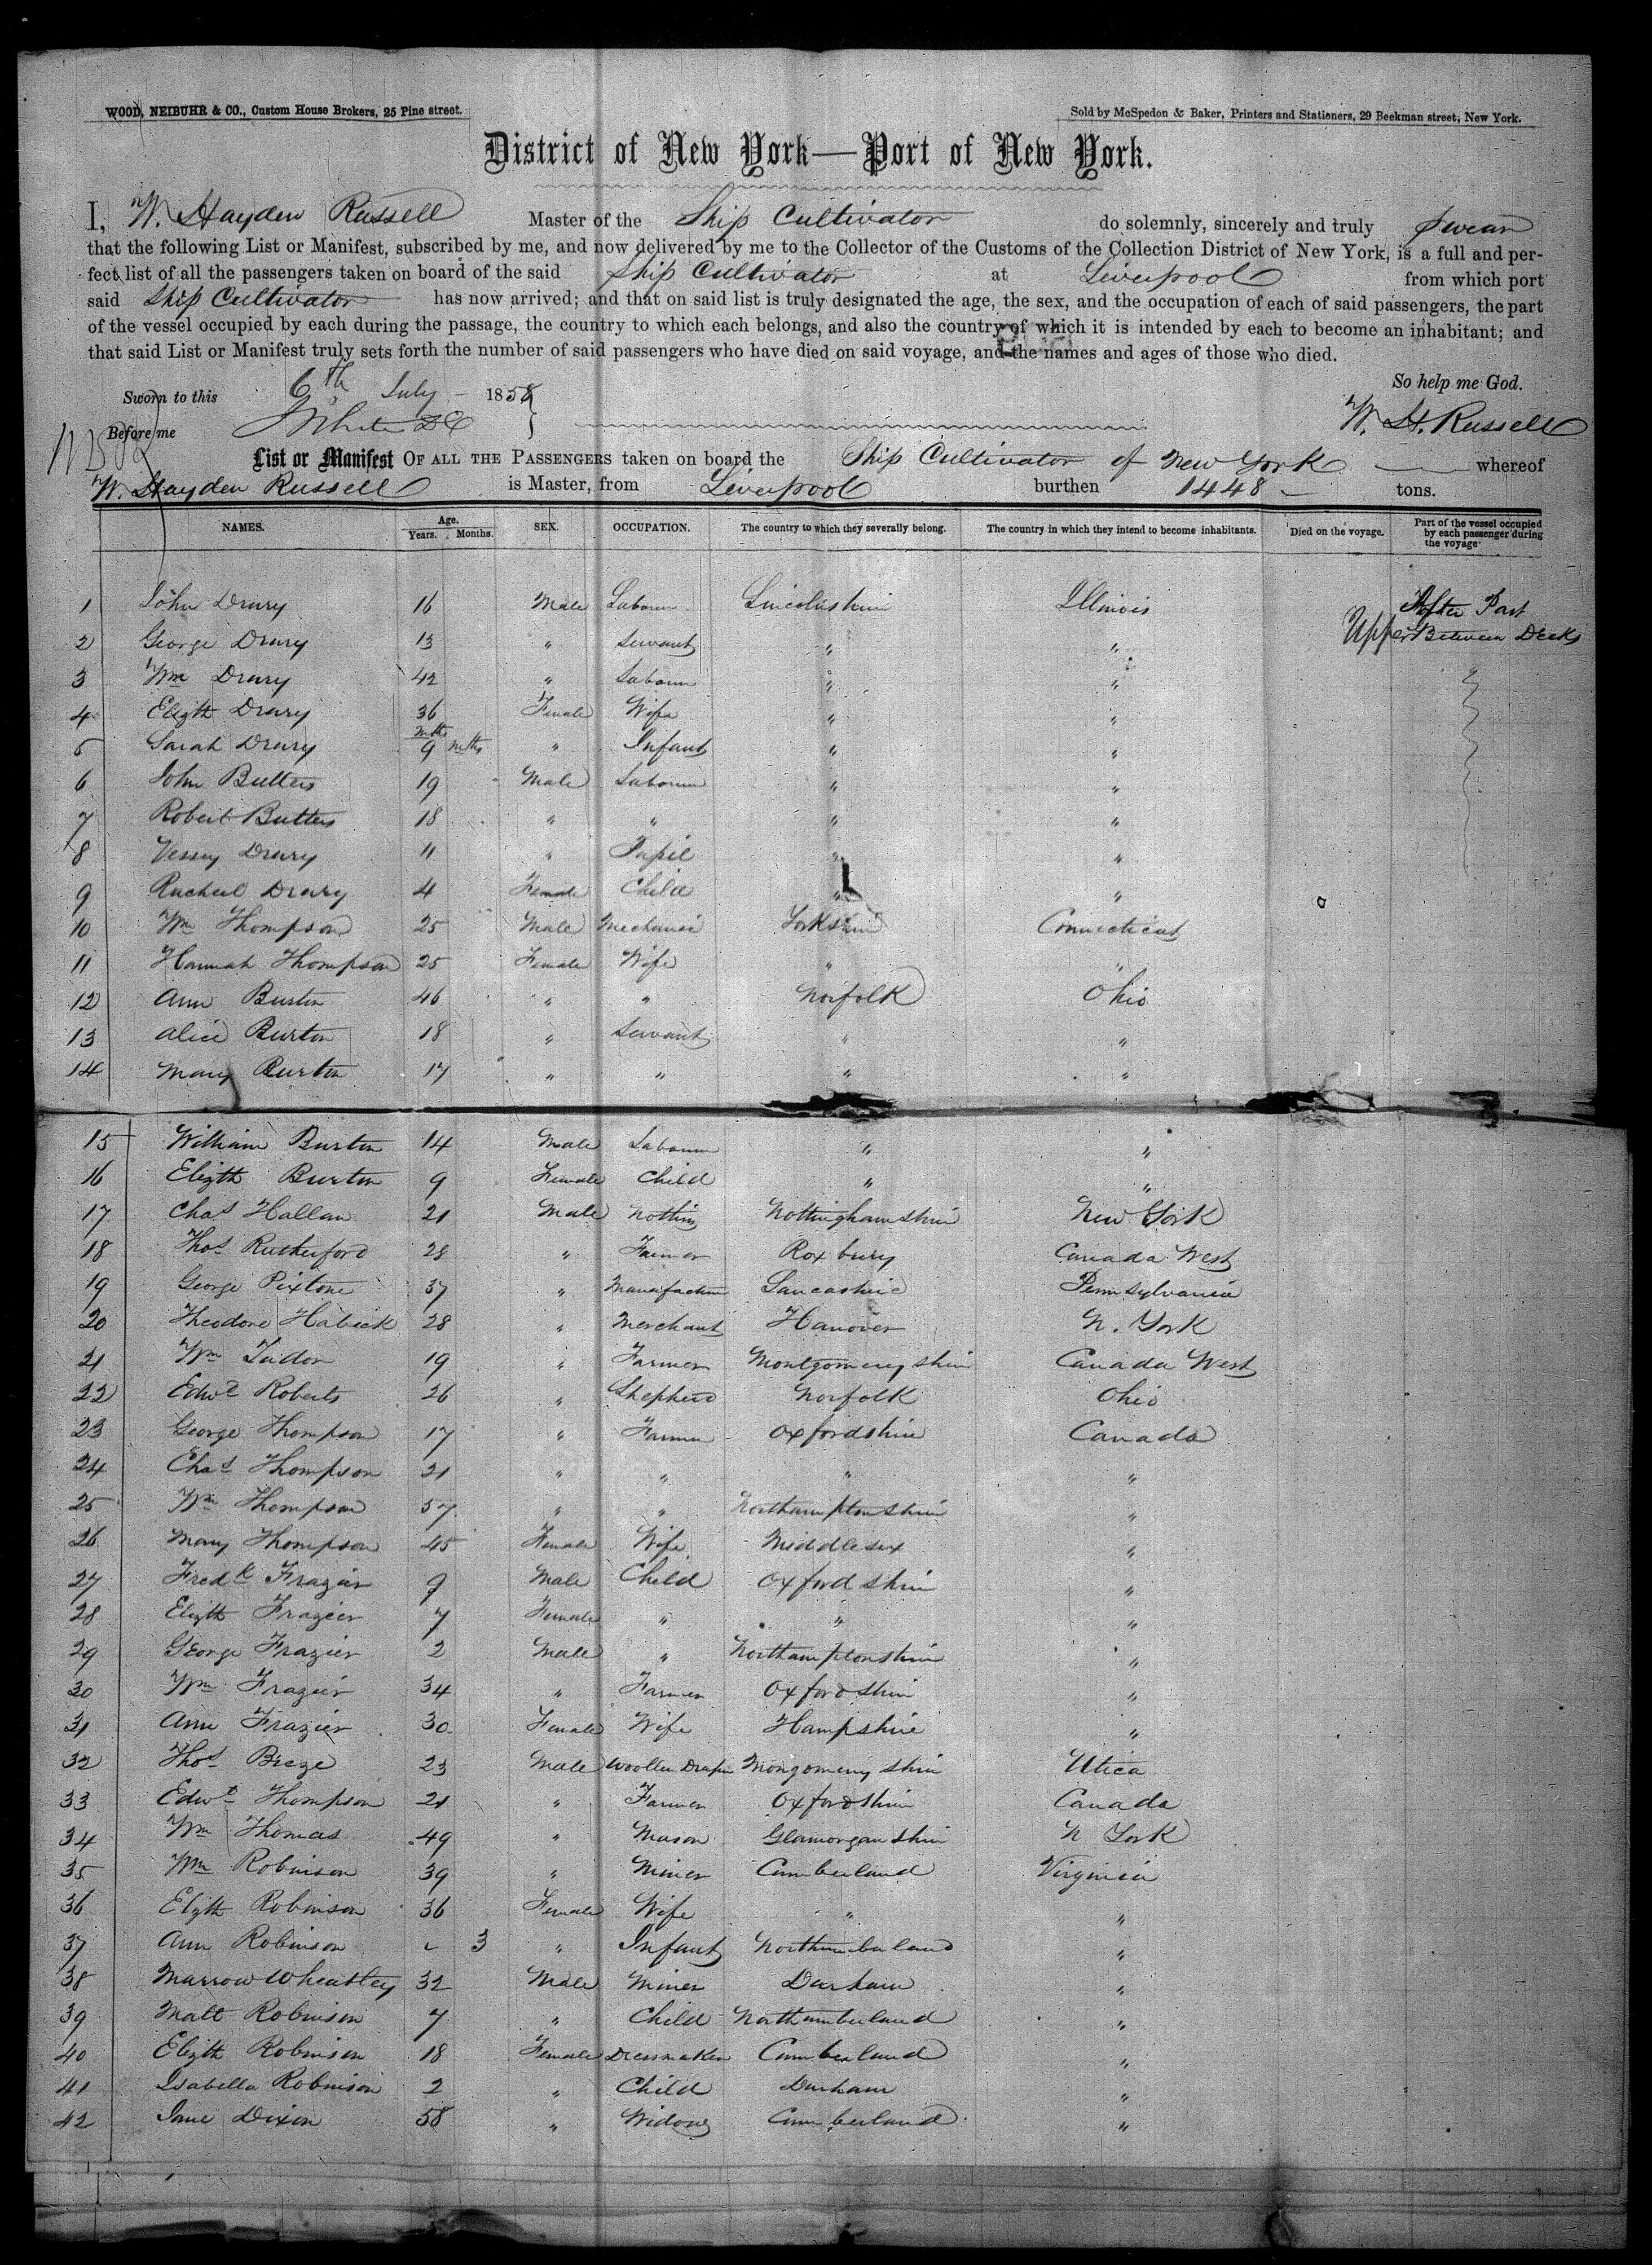 WOOD, NEIBUHR & CO., Custom House Brokers, 25 Pine street.
Sold by McSpedon & Baker, Printers and Stationers, 29 Beekman street, New York.
District of New York—Port of New York.
I, W. Hayden Russell Master of the Ship Cultivator do solemnly, sincerely and truly swear
that the following List or Manifest, subscribed by me, and now delivered by me to the Collector of the Customs of the Collection District of New York, is a full and per-
fect list of all the passengers taken on board of the said Ship Cultivator at Liverpool from which port
said Ship Cultivator has now arrived; and that on said list is truly designated the age, the sex, and the occupation of each of said passengers, the part
of the vessel occupied by each during the passage, the country to which each belongs, and also the country of which it is intended by each to become an inhabitant; and
that said List or Manifest truly sets forth the number of said passengers who have died on said voyage, and the names and ages of those who died.
So help me God.
Sworn to this 6th July 1858
W. H. Russell
Before me
List or Manifest OF ALL THE PASSENGERS taken on board the Ship Cultivator of New York whereof
W. Hayden Russell is Master, from Liverpool burthen 1448 tons.
NAMES. Age. Years. Months. SEX. OCCUPATION. The country to which they severally belong. The country in which they intend to become inhabitants. Died on the voyage. Part of the vessel occupied by each passenger during the voyage.
1 John Drury 16 Male Labourer Lincolnshire Illinois After Part
2 George Drury 13 " Servant " " Upper Between Decks
3 Wm Drury 42 " Labourer " "
4 Elizth Drury 36 Female Wife " "
5 Sarah Drury mths 9 mths " Infant " "
6 John Butters 19 Male Labourer " "
7 Robert Butters 18 " " " "
8 Vessey Drury 11 " Pupil " "
9 Rachael Drury 4 Female Child " "
10 Wm Thompson 25 Male Mechanic Yorkshire Connecticut
11 Hannah Thompson 25 Female Wife " "
12 Ann Burton 46 " " Norfolk Ohio
13 Alice Burton 18 " Servant " "
14 Mary Burton 17 " " " "
15 William Burton 14 Male Labourer " "
16 Elizth Burton 9 Female Child " "
17 Chas Hallam 21 Male Nothing Nottinghamshire New York
18 Thos Rutherford 28 " Farmer Roxbury Canada West
19 George Pixtone 37 " Manufacturer Lancashire Pennsylvania
20 Theodore Habick 28 " Merchant Hanover N. York
21 Wm Tudor 19 " Farmer Montgomeryshire Canada West
22 Edwd Roberts 26 " Shepherd Norfolk Ohio
23 George Thompson 17 " Farmer Oxfordshire Canada
24 Chas Thompson 21 " " " "
25 Wm Thompson 57 " " Northamptonshire "
26 Mary Thompson 45 Female Wife Middlesex "
27 Fredk Frazier 9 Male Child Oxfordshire "
28 Elizth Frazier 7 Female " " "
29 George Frazier 2 Male " Northamptonshire "
30 Wm Frazier 34 " Farmer Oxfordshire "
31 Ann Frazier 30 Female Wife Hampshire "
32 Thos Breze 23 Male Woollen Draper Mongomeryshire Utica
33 Edwd Thompson 21 " Farmer Oxfordshire Canada
34 Wm Thomas 49 " Mason Glamorganshire N York
35 Wm Robinson 39 " Miner Cumberland Virginia
36 Elizth Robinson 36 Female Wife " "
37 Ann Robinson 3 " Infant Northumberland "
38 Marrow Wheatley 32 Male Miner Durham "
39 Matt Robinson 7 " Child Northumberland "
40 Elizth Robinson 18 Female Dressmaker Cumberland "
41 Isabella Robinson 2 " Child Durham "
42 Jane Dixon 58 " Widow Cumberland "